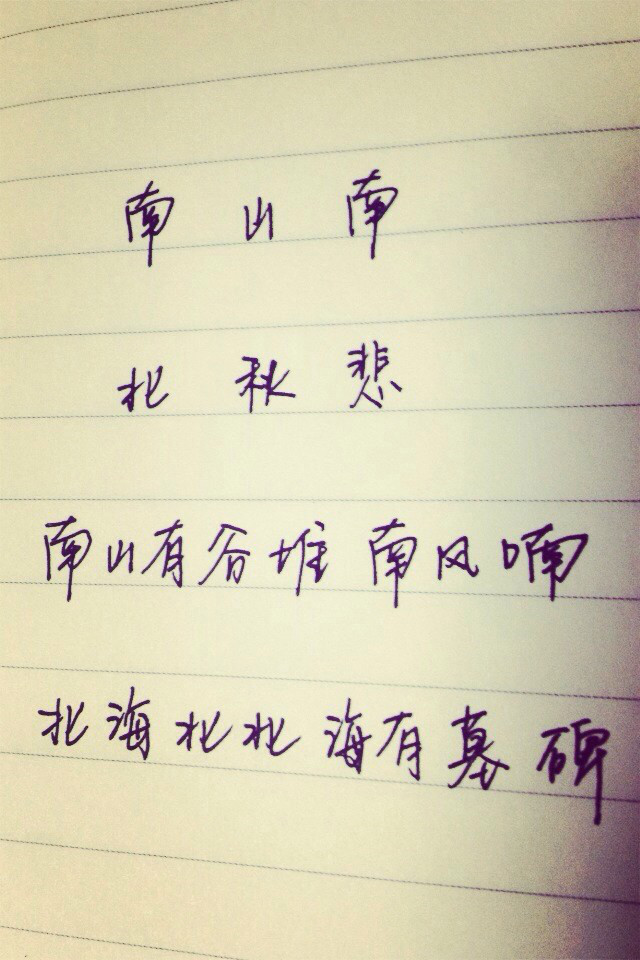 南山南
北秋悲
南山有谷堆 南风喃
北海北北海有墓碑